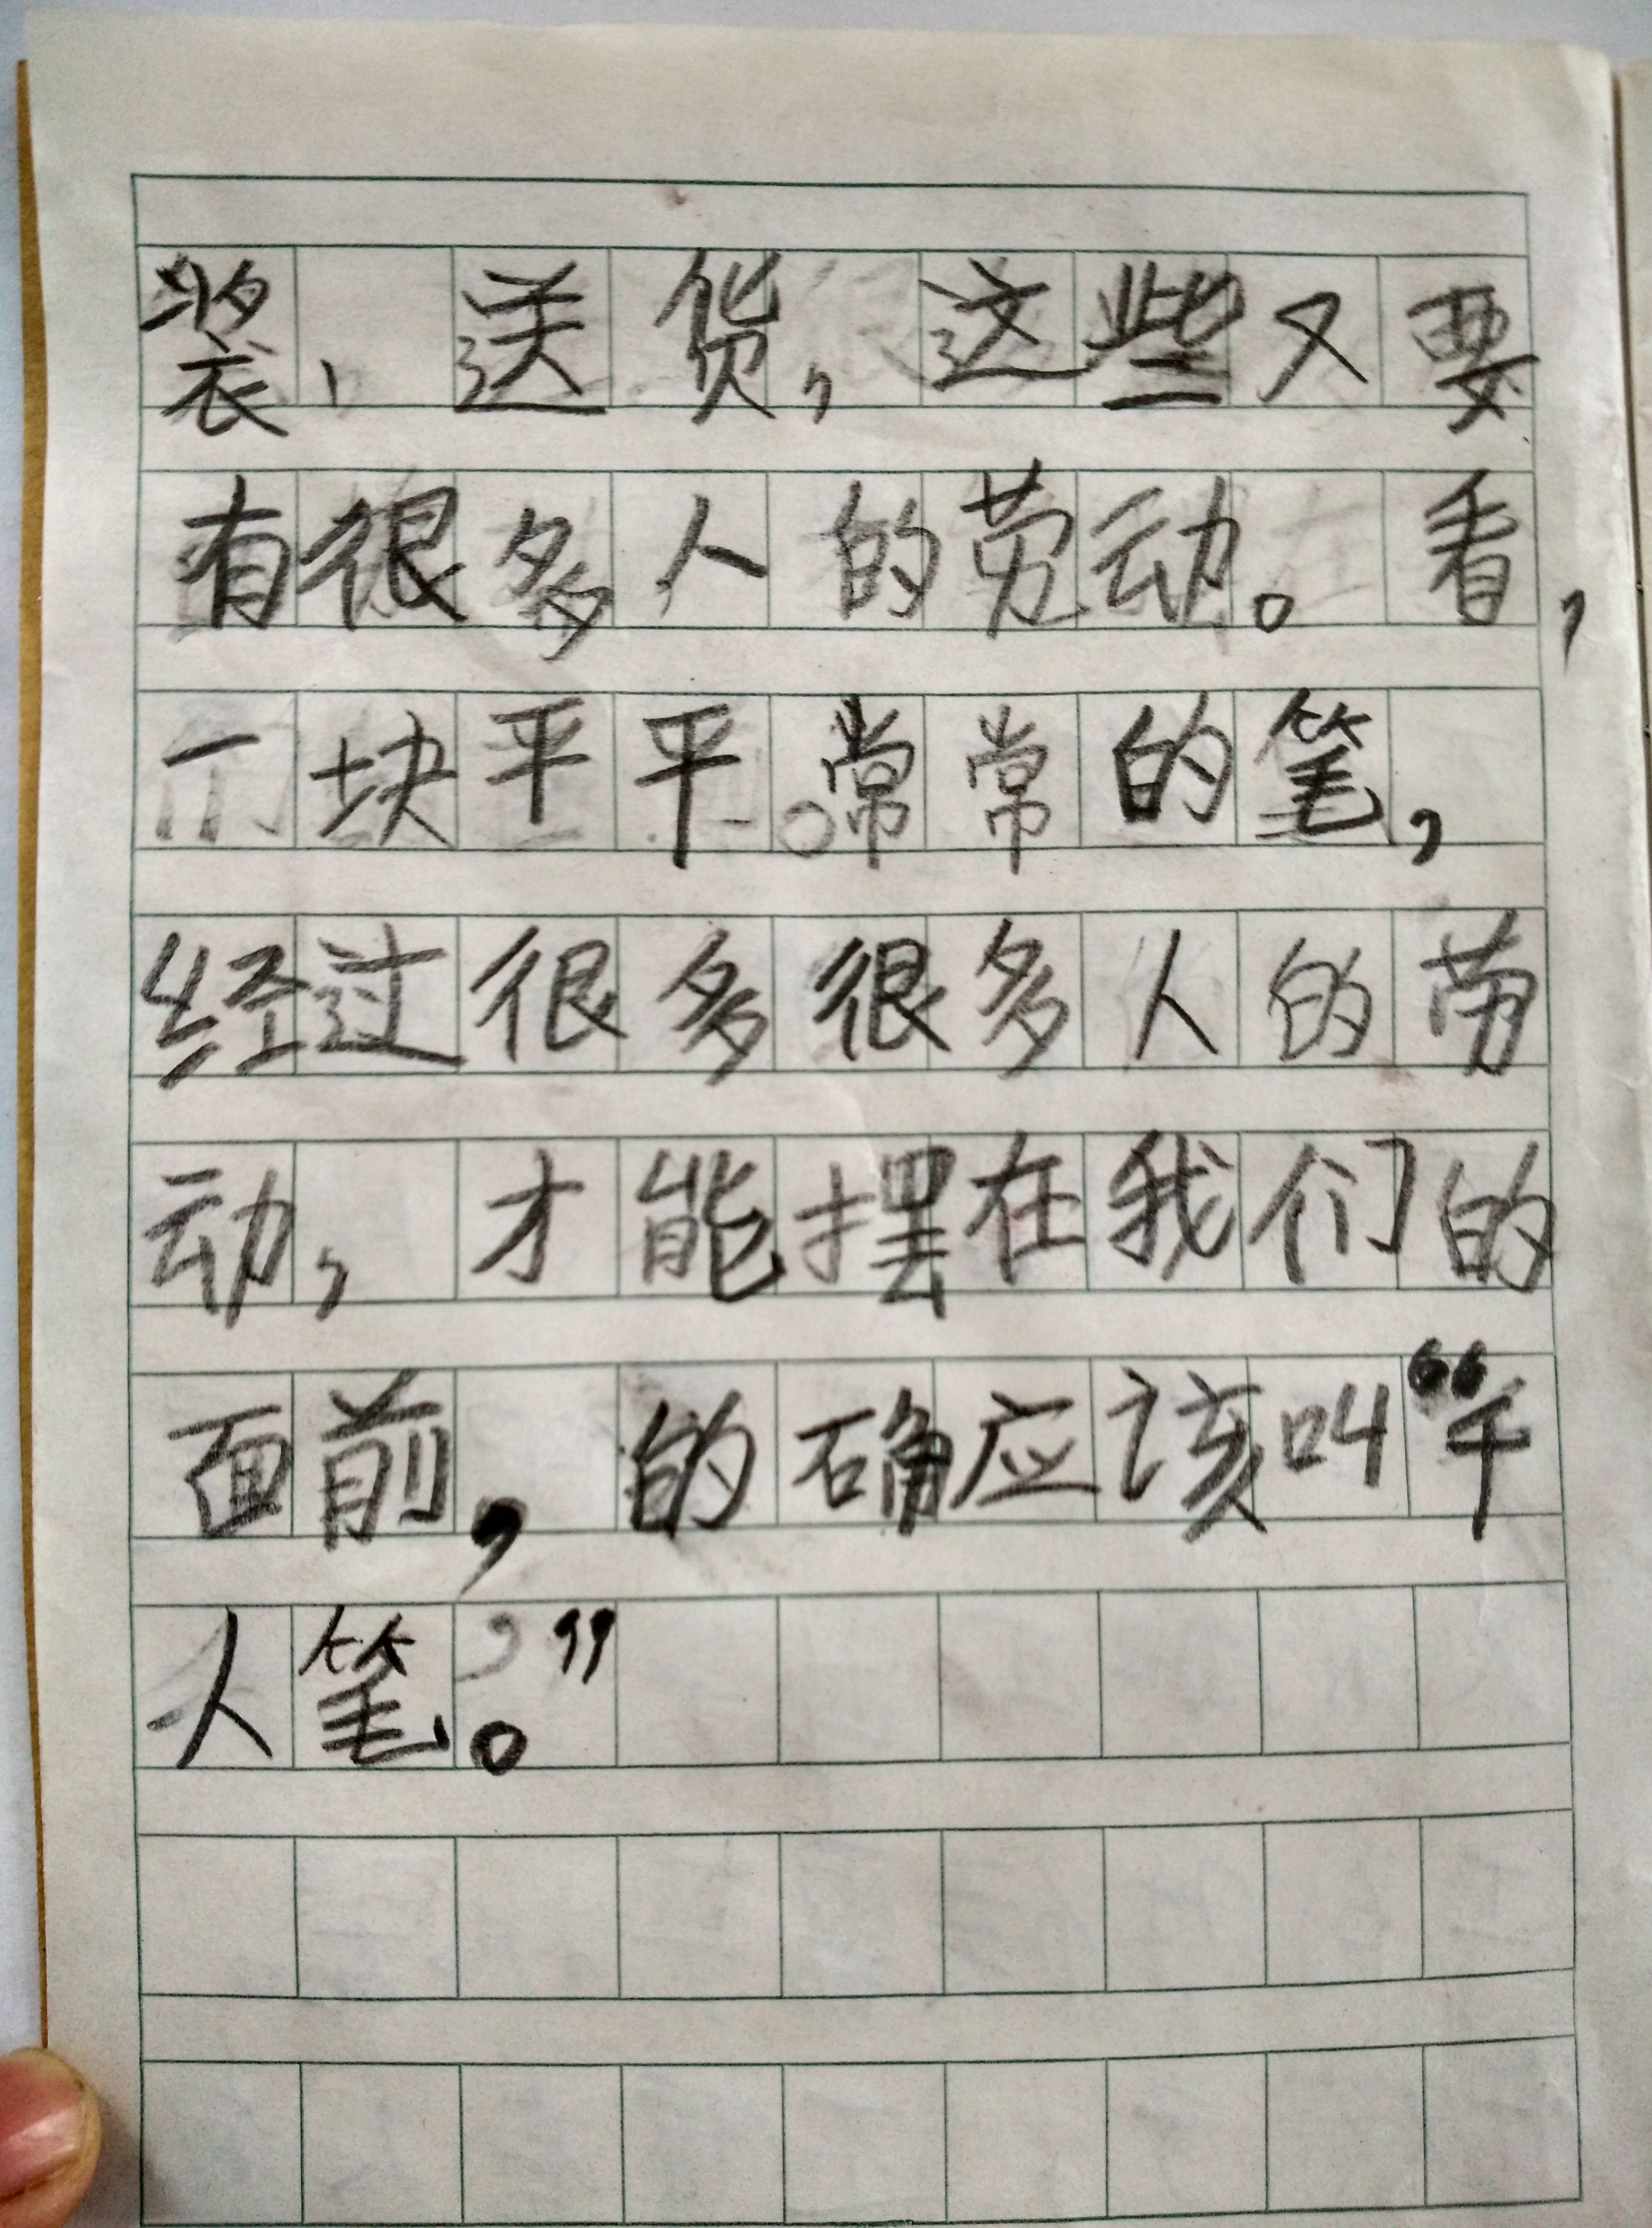 装、送货，这些又要
有很多人的劳动。看，
一块平平常常的笔，
经过很多很多人的劳
动，才能摆在我们的
面前，的确应该叫“千
人笔。”